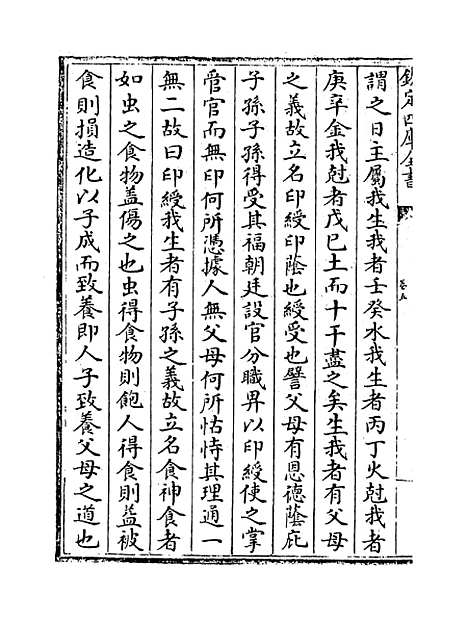 欽定四庫全書
卷五
謂之日主屬我生我者壬癸水我生者丙丁火尅我者
庚辛金我尅者戊巳土而十干盡之矣生我者有父母
之義故立名印綬印蔭也綬受也譬父母有恩德蔭庇
子孫子孫得受其福朝廷設官分職畀以印綬使之掌
管官而無印何所憑據人無父母何所怙恃其理通一
無二故曰印綬我生者有子孫之義故立名食神食者
如虫之食物盖傷之也虫得食物則飽人得食則益被
食則損造化以子成而致養即人子致養父母之道也